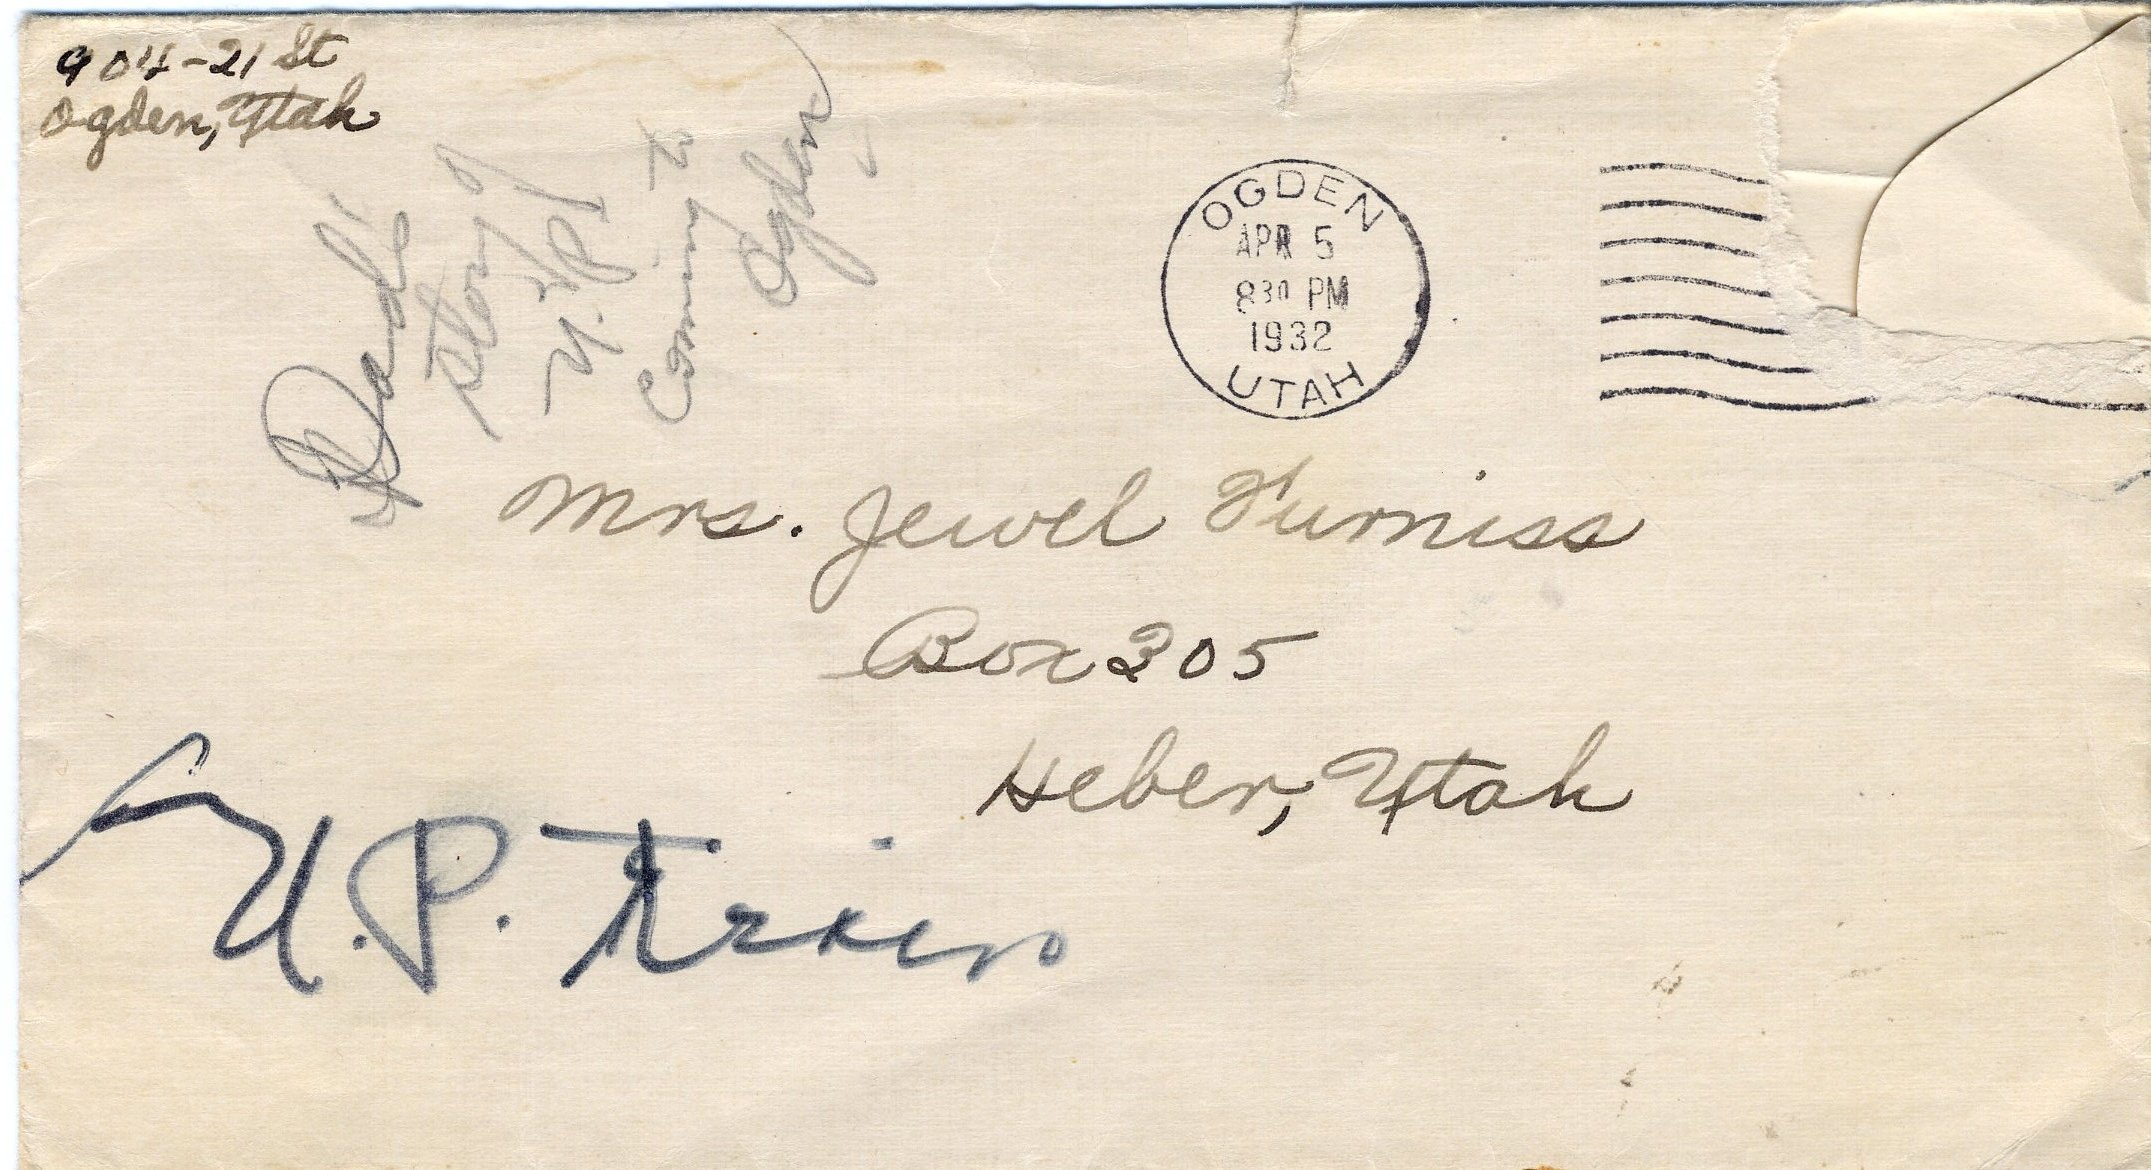 904-21 St
Ogden, Utah
Dad's
story of
U.P.
Coming to
Ogden
OGDEN
APR 5
830 PM
1932
UTAH
Mrs. Jewel Furniss
Box 305
Heber, Utah
U.P.